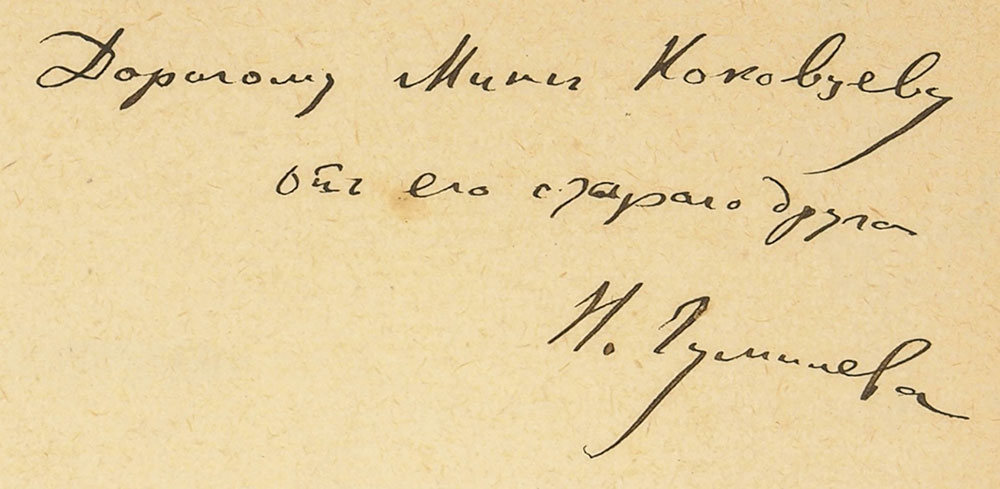 Дорогому Митѣ Коковцеву
отъ его стараго друга
Н. Гумилева